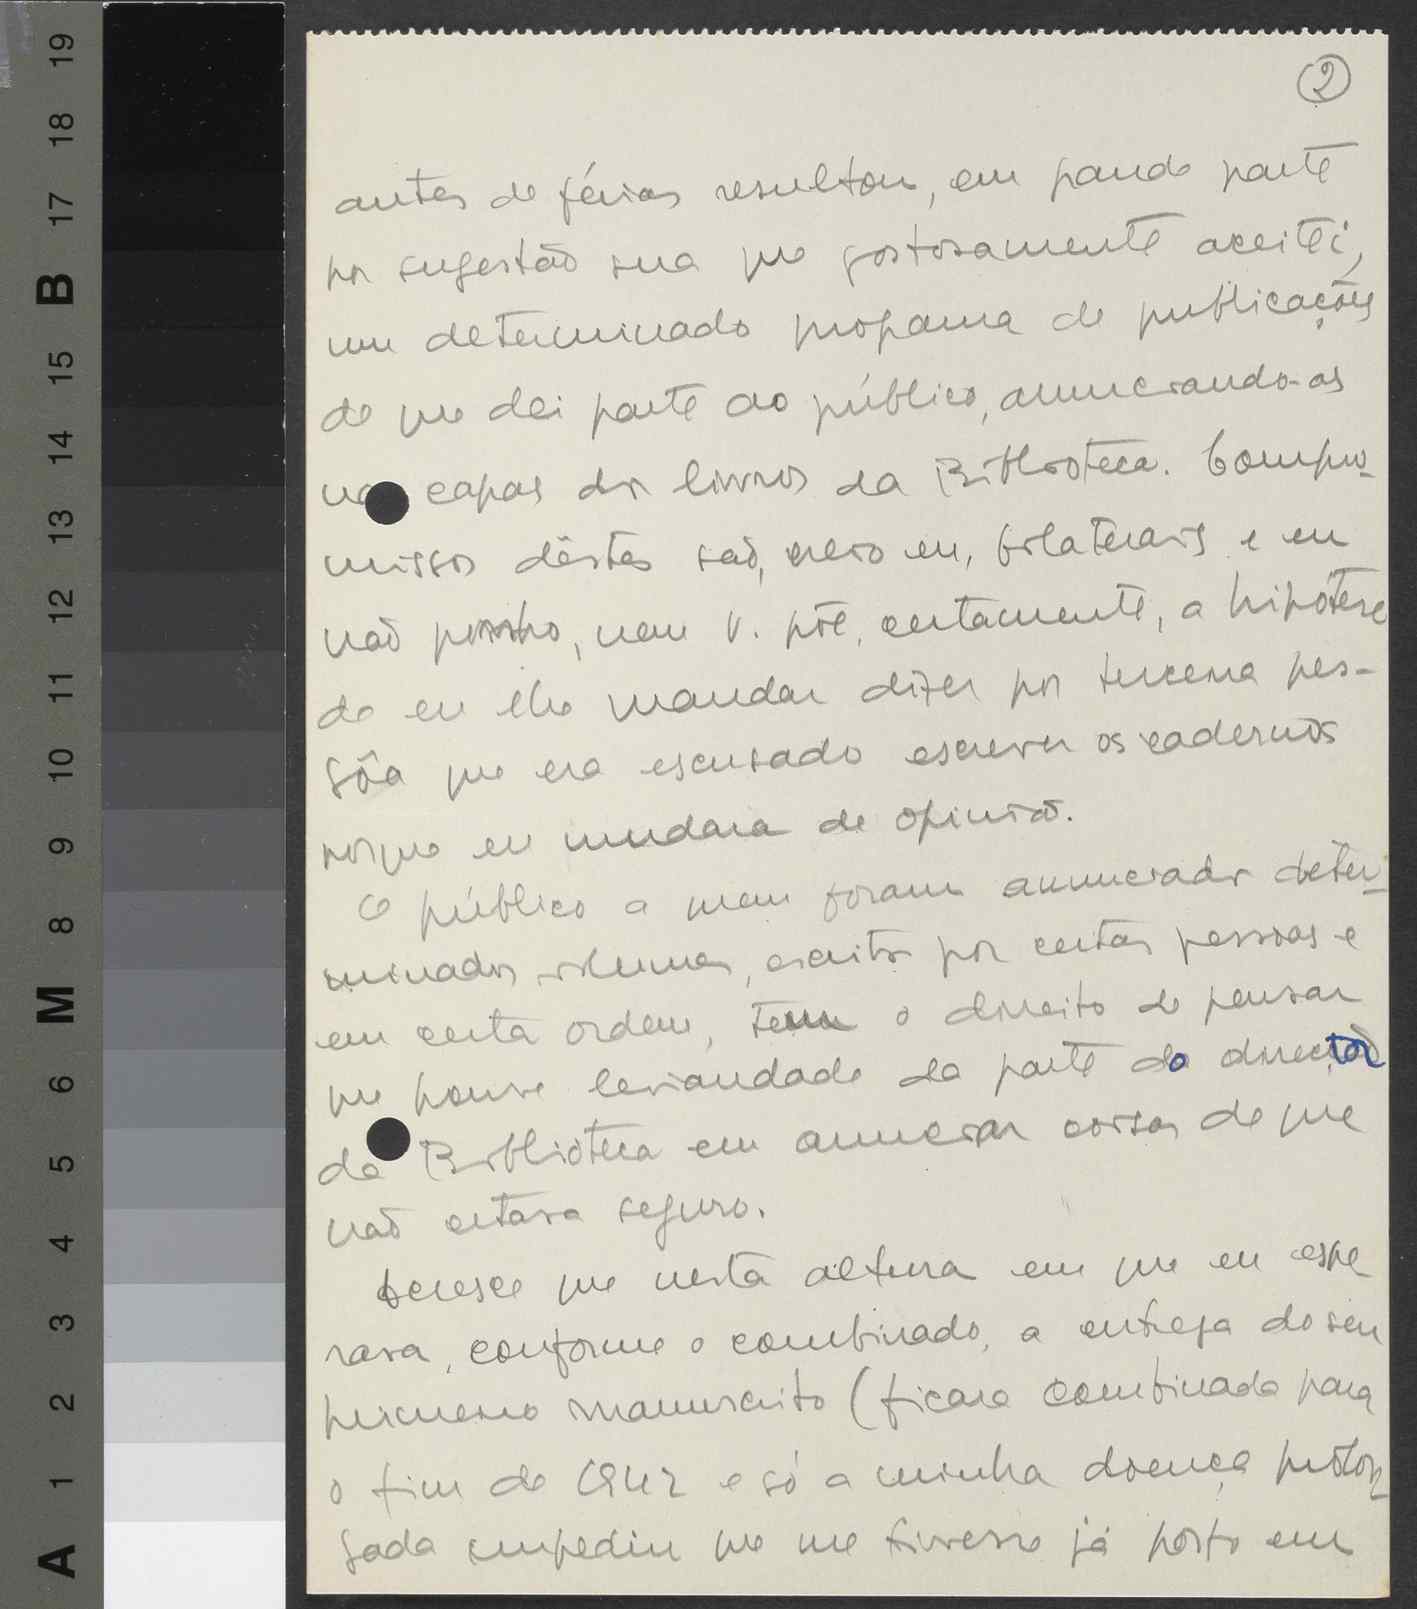 2
antes de férias resultou, em grande parte
por sugestão sua que gostosamente aceitei,
um determinado programa de publicações
de que dei parte ao público, anunciando-as
nas capas dos livros da Biblioteca. Compro-
missos dêstes são, creio eu, bilaterais e eu
não ponho, nem V. põe, certamente, a hipótese
de eu lhe mandar dizer por terceira pes-
sôa que era escusado escrever os cadernos
porque eu mudara de opinião.
O público a quem foram anunciados deter-
minados volumes, escritos por certas pessoas e
em certa ordem, tem o direito de pensar
que houve leviandade da parte do director
da Biblioteca em anunciar coisas de que
não estava seguro.
Acresce que nesta altura em que eu espe
rava, conforme o combinado, a entrega do seu
primeiro manuscrito (ficara combinado para
o fim de 1942 e só a minha doença prolon-
gada impediu que me tivesse já posto em
19 18 17 B 15 14 13 12 11 10 9 8 M 6 5 4 3 2 1 A